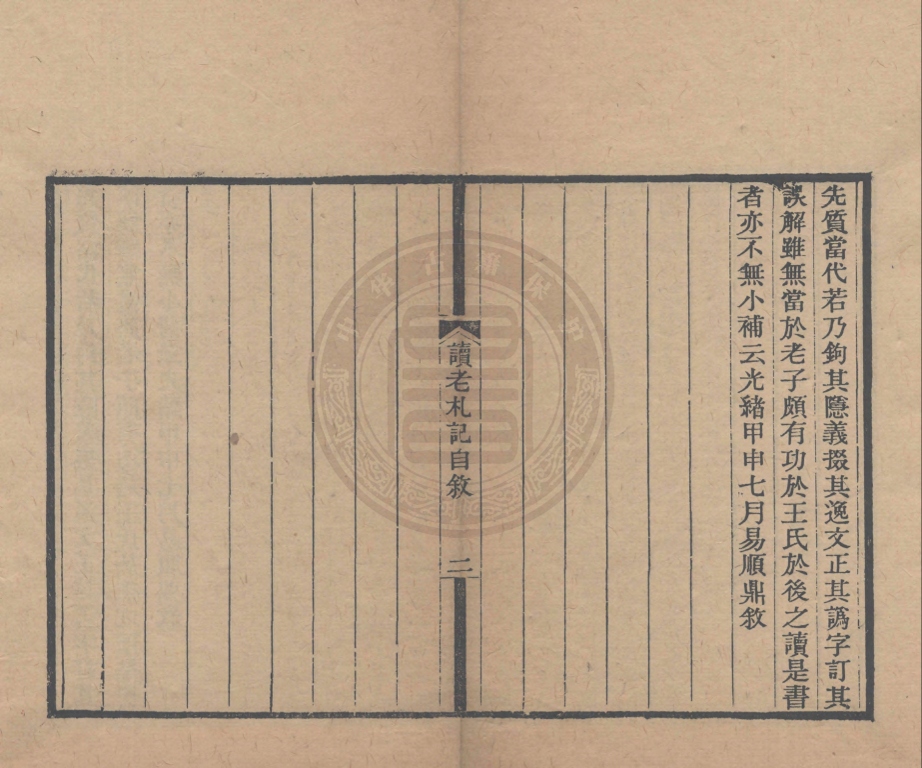 先質當代若乃鉤其隱義掇其逸文正其譌字訂其
誤解雖無當於老子頗有功於王氏於後之讀是書
者亦不無小補云光緒甲申七月易順鼎敘
讀老札記自敘
二